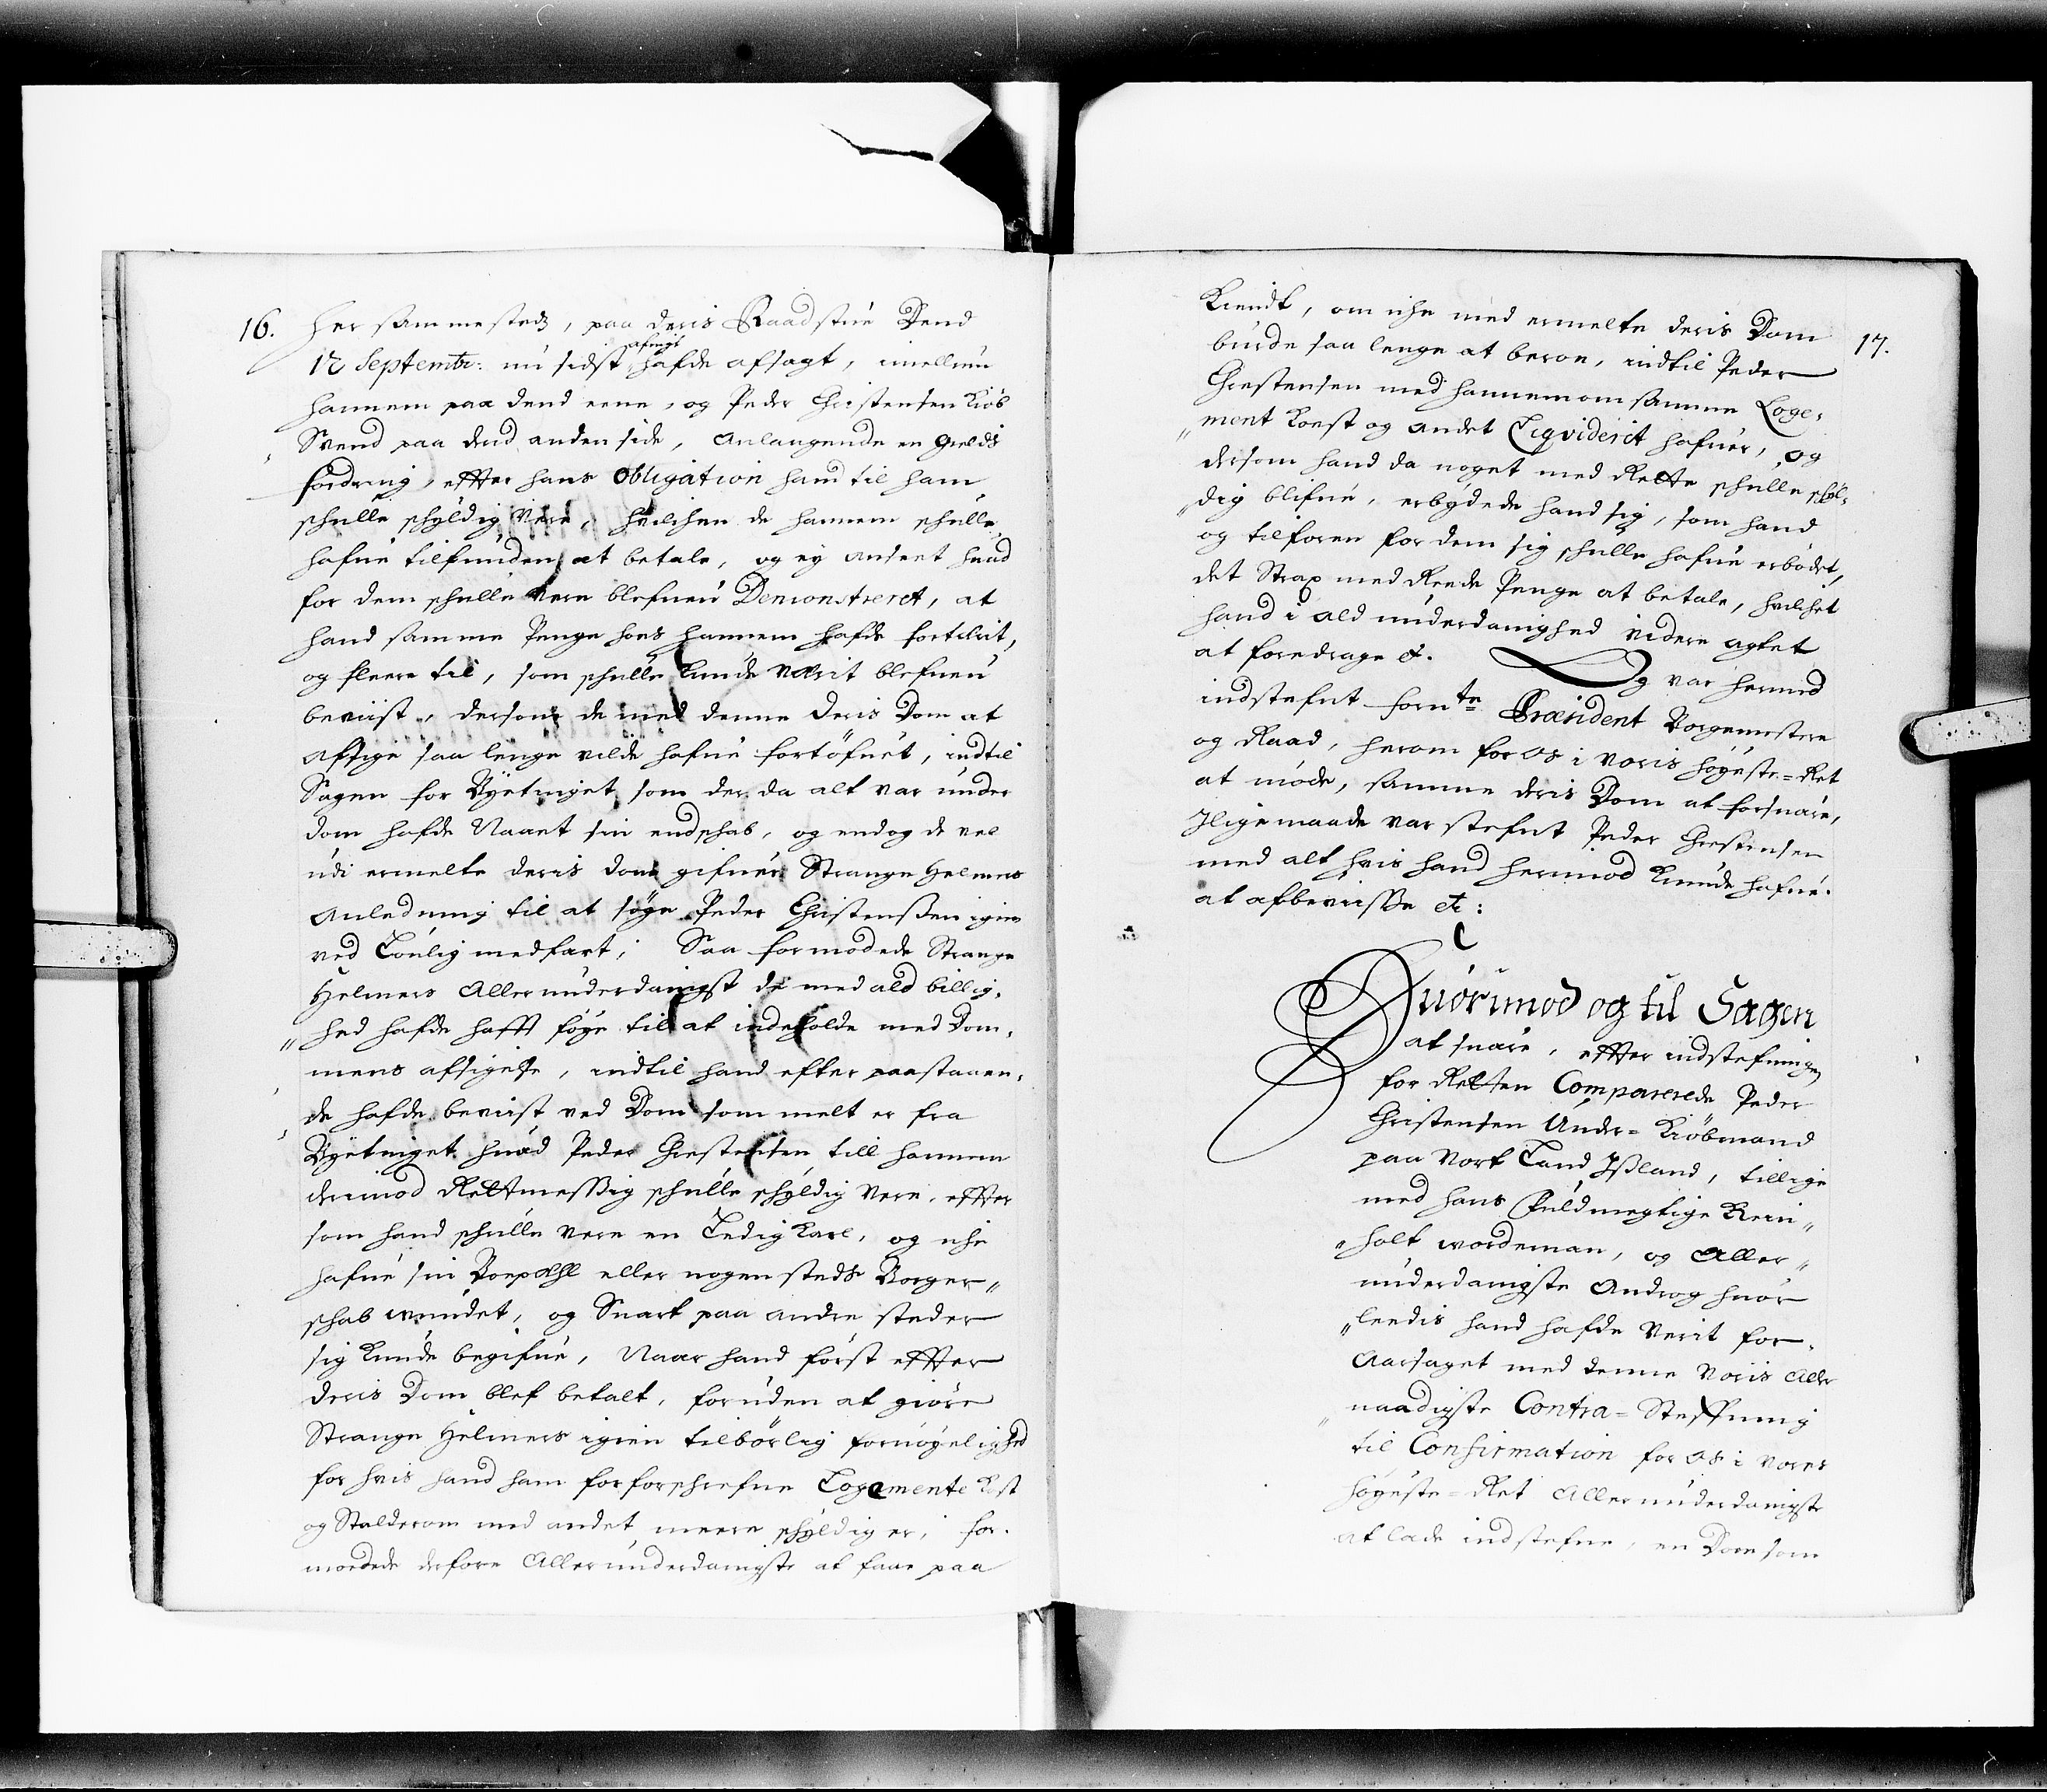 16.
her sammesteds, paa deris Raadstúe Dend
12 Septembr: nú sidst afvigt hafde afsagt, imellem
hannem paa dend eene, og Peder Christensen Kiøb
Svend paa dend anden side, Anlangende en gields
fordring, effter hans Obligation hand til ham
schulle schyldig Vere, hvilchen de hannem schulle
hafúe tilfunden at betale, og ey anseet húad
for dem schulle Vere blefúen Demonstreret, at
hand samme Penge hoes hannem hafde fortærit,
og fleere til, som schulle kúnde værit blefúen
beviist, dersom de med denne deris Dom at
afsige saa lenge vilde hafúe fortøfúet, indtil
Sagen for Byetinget som der da alt var únder
dom hafde Naaet sin endschab, og endog de vel
údi ermelte deris dom gifúer Strange Helmers
Anledning til at søge Peder Christenssen igien
ved Louglig medfart; Saa formodede Strange
Helmers Allerúnderdanigst de med ald billig,
hed hafde hafft føye til at indeholde med Dom,
mens afsigelse, indtil hand efter paastaaen,
de hafde beviist ved Dom som melt er fra
Byetinget húad Peder Christensen till hannem
derimod Rettmessig schulle schyldig Vere, effter
som hand schulle Vere en Ledig Karl, og iche
hafúe sin Boepæhl eller nogen steds Borger,,
schab vundet, og Snart paa andre steder
sig kunde begifúe, Naar hand først effter
deris Dom blef betalt, forúden at giøre
Strange Helmers igien tilbørlig fornøyelighed
for hvis hand ham for forschrefne Logemente Kost
og Stalderom med andet meere schyldig er, for,
moedede derfore Allerúnderdanigste at faae paa
17.
Kiendt, om iche med ermelte deris Dom
búrde saa lenge at beroe, indtil Peder
Christensen med hannem om samme Loge,
ment Koest og andet Liqviderit hafúer, og
dersom hand da noget med Rette schulle schyl,
dig blifúe, erbydede hand sig, som hand
og tilforen for dem sig schulle hafúe erbødet,
det Strax med Reede Penge at betale, hvilchet
hand i ald únderdanighed videre agtet
at foredrage &. Og var hermed
indstefnt forn:te Præsident Borgemestere
og Raad, herom for os i Voris høyeste=Ret
at møde, samme deris Dom at forsúare,
Iligemaade var stefnt Peder Christensen
med alt hvis hand hermod kúnde hafúe
at afbeviisse &:
Húorimod og til Sagen
at súare, effter indstefningen
for Retten Comparerede Peder
Christensen Under= Kiøbmand
paa Vort Land Ißland, tillige
med hans Fuldmegtige Rein,,
holt wordeman, og Aller,,
únderdanigste Androg húor
leedis hand hafde Verit for,
Aarsaget med denne Voris Aller
naadigste Contra=Steffning
til Confirmation for os i Vores
høyeste=Ret Allerúnderdanigste
at lade indstefne, en Dom som